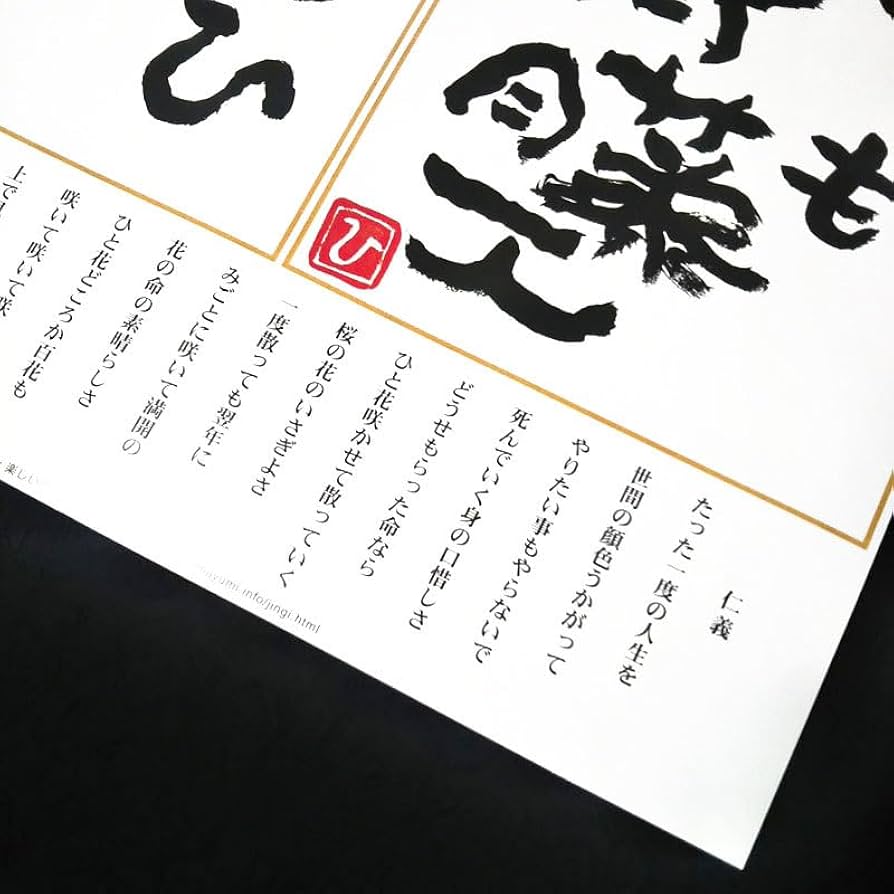 も
ひ
ひ
仁義
たった一度の人生を
世間の顔色うかがって
やりたい事もやらないで
死んでいく身の口惜しさ
どうせもらった命なら
ひと花咲かせて散っていく
桜の花のいさぎよさ
一度散っても翌年に
みごとに咲いて満開の
花の命の素晴らしさ
ひと花どころか百花も
咲いて咲いて咲
上で
楽しい
ayumi.info/jingi.html